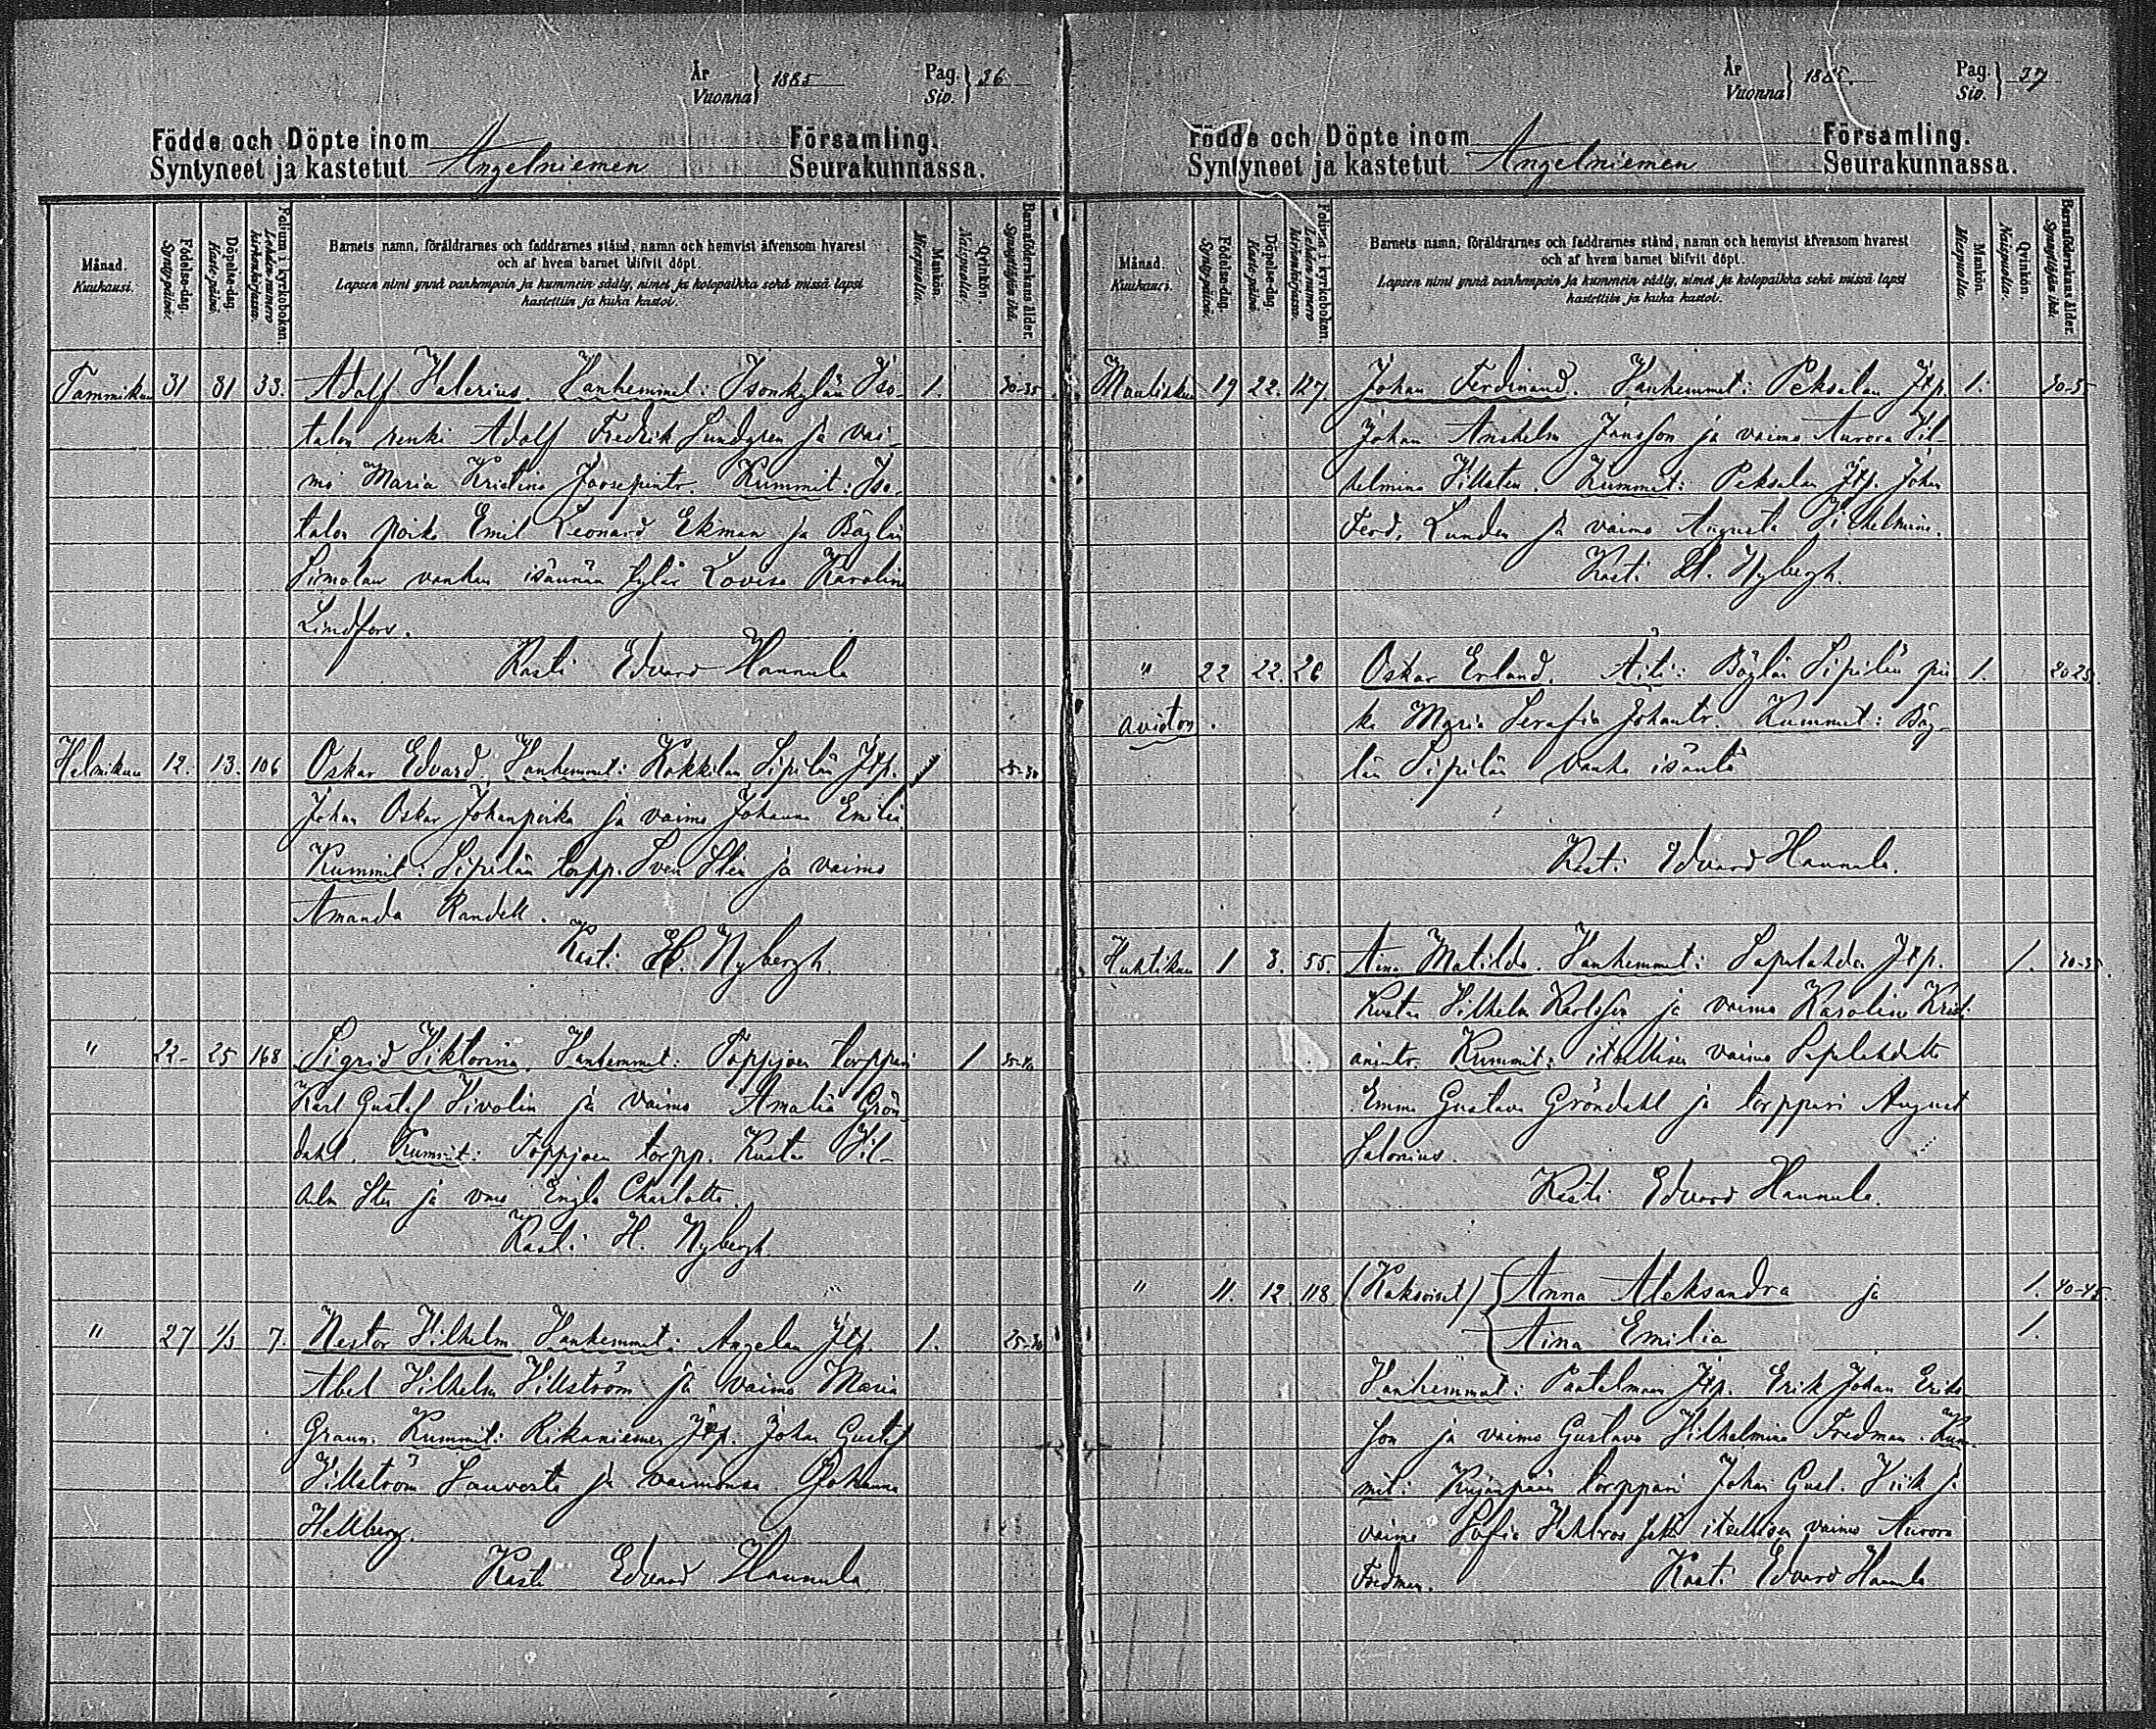 År
Vuonna } 1885
Pag.
Siv. } 36
Födde och Döpte inom Församling.
Syntyneet ja kastetut Angelniemen Seurakunnassa.
Månad.
Kuukausi.
Födelse-dag.
Syntypäivä.
Döpelse-dag.
Kaste-päivä.
Folium i kyrkobokan.
Lehden numero kirkonkirjassa.
Barnets namn, föräldrarnes och faddrarnes stånd, namn och hemvist äfvensom hvarest
och af hvem barnet blifvit döpt.
Lapsen nimi ynnä vanhempain ja kummein sääty, nimet ja kotopaikka sekä missä lapsi
kastettiin ja kuka kastoi.
Mankön.
Miespuolia.
Qvinkön.
Naispuolia.
Barnaföderskans ålder.
Synnyttäjän ikä.
Tammikuu 31 31 33. Adolf Valerius. Vanhemmat: Isonkylän Iso- 1. 30-35
talon renki Adolf Fredrik Lundgren ja vai-
mo Maria Kristina Joosepintr. Kummit: Iso-
talon poika Emil Leonard Ekman ja Böylän
Simolan vanhan isännän tytär Lovisa Karolina
Lindfors.
Kasti Edvard Hannula
Helmikuu 12. 13. 106 Oskar Edvard. Vanhemmat: Kokkilan Sipilän Itp. 1 25-30
Johan Oskar Johanpoika ja vaimo Johanna Emilia.
Kummit: Sipilän torpp. Sven Sten ja vaimo
Amanda Randell.
Kast: H. Nybergh.
" 22- 25 168 Sigrid Viktorina. Vanhemmat: Toppjoen torppari 1 35-40
Karl Gustaf Vivolin ja vaimo Amalia Grön-
dahl. Kummit: Toppjoen torpp. Kustaa Vil-
helm Sten ja vmo Engla Charlotta.
Kast: H. Nybergh.
" 27 1/3 7. Nestor Vilhelm Vanhemmat: Angelan Itp. 1. 25-30
Abel Vilhelm Villström ja vaimo Maria
Kummit: Rikaniemen Itp. Johan Gustaf
Villström Sauvosta ja vaimonsa Johanna
Hellberg.
Kasti Edvard Hannula
År
Vuonna } 1885.
Pag.
Siv. } 37
Födde och Döpte inom Församling.
Syntyneet ja kastetut Angelniemen Seurakunnassa.
Månad.
Kuukausi.
Födelse-dag.
Syntypäivä.
Döpelse-dag.
Kaste-päivä.
Folium i kyrkobokan.
Lehden numero kirkonkirjassa.
Barnets namn, föräldrarnes och faddrarnes stånd, namn och hemvist äfvensom hvarest
och af hvem barnet blifvit döpt.
Lapsen nimi ynnä vanhempain ja kummein sääty, nimet ja kotopaikka sekä missä lapsi
kastettiin ja kuka kastoi.
Mankön.
Miespuolia.
Qvinkön.
Naispuolia.
Barnaföderskans ålder.
Synnyttäjän ikä.
Maaliskuu 19 22. 127. Johan Ferdinand. Vanhemmat: Peksalan Itp. 1.
Johan Anshelm Jansson ja vaimo Aurora Vil-
helmina Villsten. Kummit: Peksalan Itp. Johan
Ferd. Lunden ja vaimo Augusta Vilhelmina.
Kasti H. Nybergh.
" 22 22. 26 Oskar Erland. Äiti: Böylän Sipilän pii- 1. 20-25.
avioton. ka Maria Serafia Johantr. Kummit: Böy-
län Sipilän vanha isäntä
Kasti Edvard Hannula.
Huhtikuu 1 3. 55. Aina Matilda. Vanhemmat: Sapalahden Itp. 1. 30-35.
Kustaa Vilhelm Karlsson ja vaimo Karolina Kristi-
anintr. Kummit: itsellisen vaimo Sapalahdelta
Emma Gustava Gröndahl ja torppari August
Salonius.
Kasti Edvard Hannula.
" 11. 12. 118. (Kaksoiset) { Anna Aleksandra ja 1. 40-45.
Aina Emilia 1.
Vanhemmat: Paatelmaan Itp. Erik Johan Eriks-
son ja vaimo Gustava Vilhelmina Fredman. Kum-
mit: Kujanpään torppari Johan Gust. Viik ja
vaimo Sofia Vahlroos sekä itsellisen vaimo Aurora
Fredman. Kasti Edvard Hannula